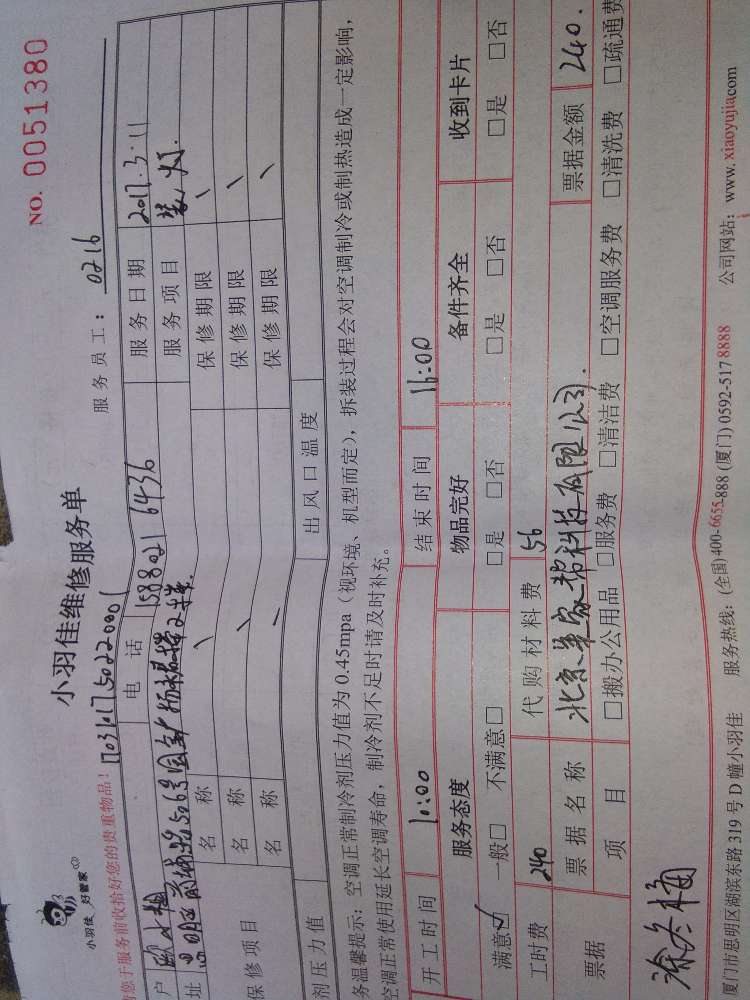 小羽佳 好管家
小羽佳维修服务单
NO. 0051380
您于服务前收拾好您的贵重物品!
服务员工: 0216
户 电话 15880216436 服务日期 2017.3.11
址 服务项目 装灯
保修项目
名称 保修期限
名称 保修期限
名称 保修期限
剂压力值 出风口温度
务温馨提示: 空调正常制冷剂压力值为 0.45mpa (视环境、机型而定), 拆装过程会对空调制冷或制热造成一定影响,
空调正常使用延长空调寿命, 制冷剂不足时请及时补充。
开工时间 结束时间 16:00
服务态度 物品完好 备件齐全 收到卡片
满意☑ 一般□ 不满意□ □是 □否 □是 □否 □是 □否
工时费 240 代购材料费 56
票据 票据名称 票据金额 240.
项目 □搬办公用品 □服务费 □清洁费 □空调服务费 □清洗费 □疏通费
厦门市思明区湖滨东路 319 号 D 幢小羽佳 服务热线: (全国)400-6655-888 (厦门) 0592-517 8888 公司网站: www.xiaoyujia.com